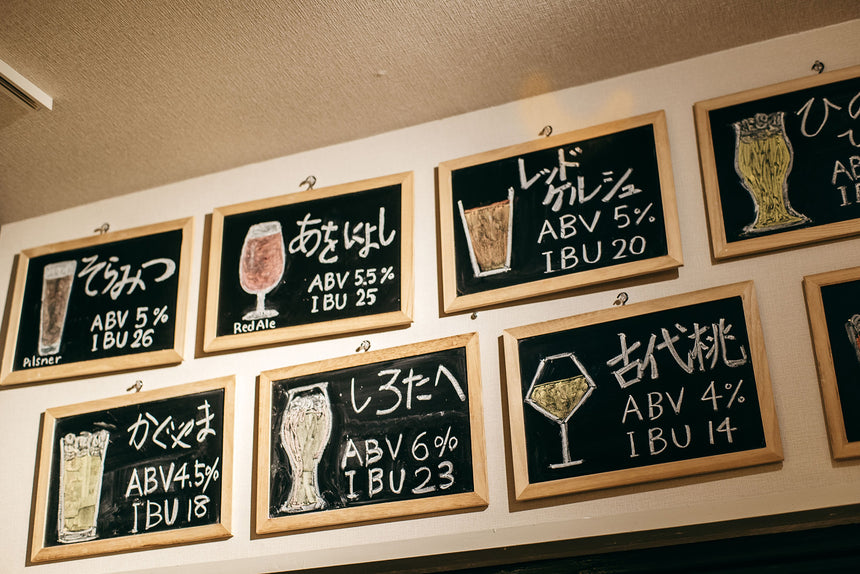 そらみつ
ABV 5%
IBU 26
Pilsner
あをによし
ABV 5.5%
IBU 25
Red Ale
レッド
ケルシュ
ABV 5%
IBU 20
ひの
かぐやま
ABV 4.5%
IBU 18
しろたへ
ABV 6%
IBU 23
古代桃
ABV 4%
IBU 14